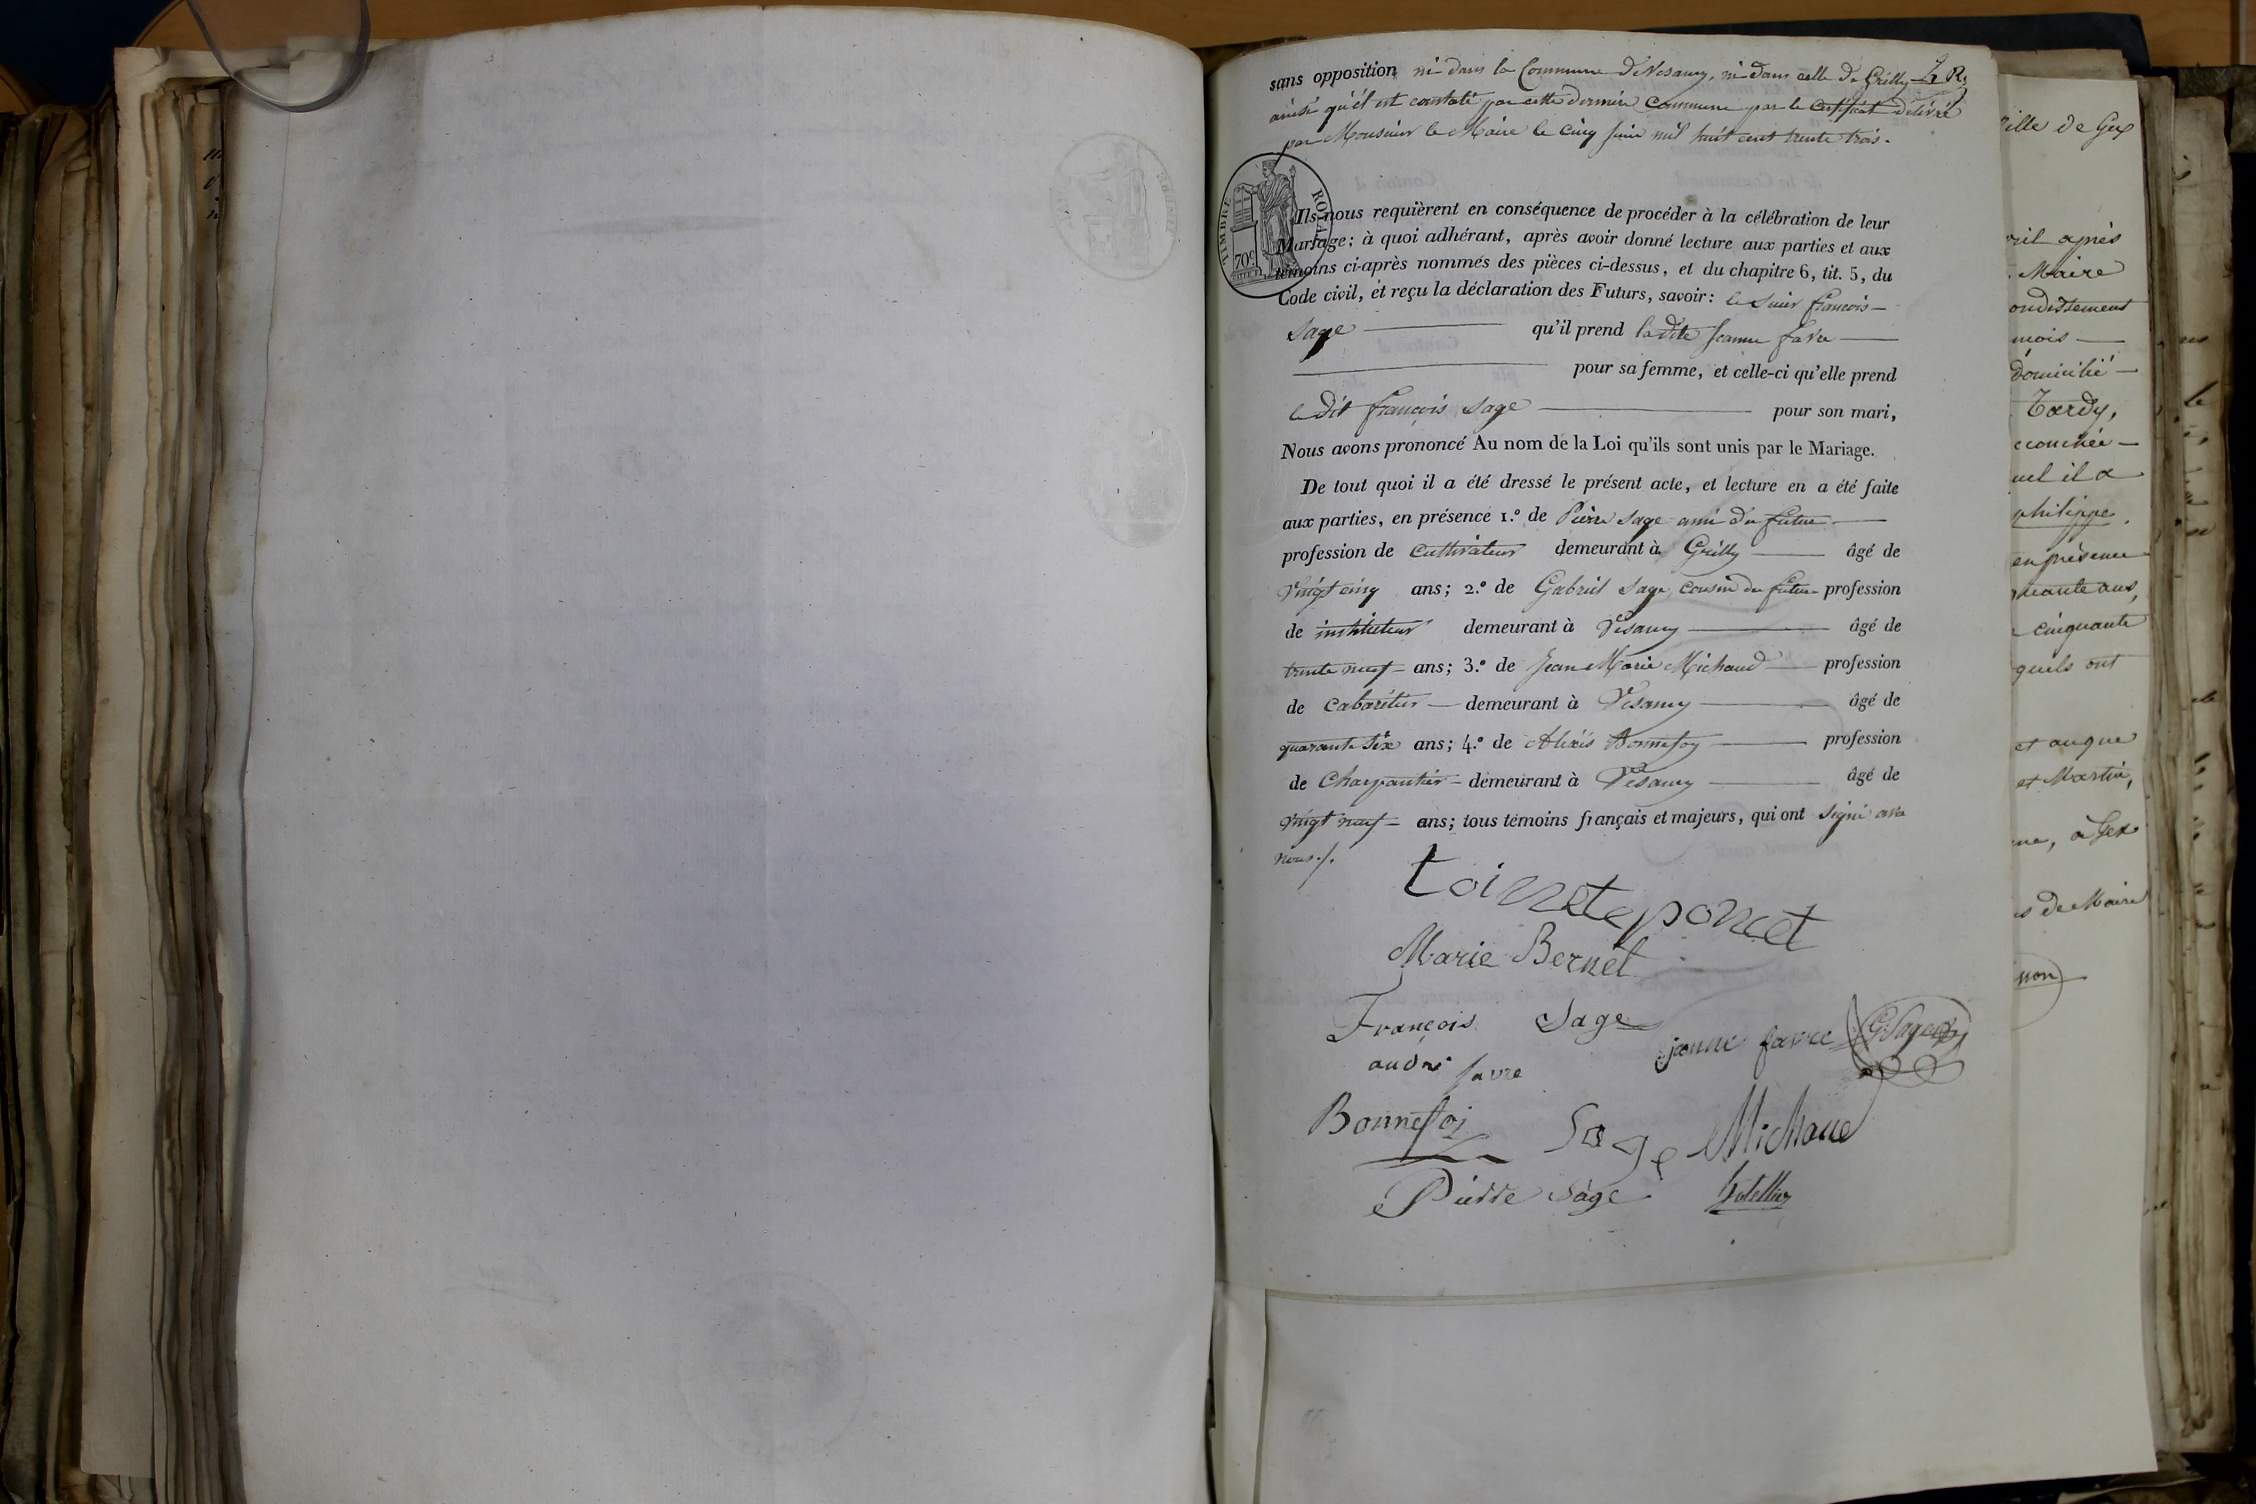 sans opposition ni dans la Commune de Vesancy, ni dans celle de Grilly
ainsi qu'il est constaté par cette dernière Commune par le certificat délivré
par Monsieur le Maire le cinq juin mil huit cent trente trois.
TIMBRE ROYAL
70c
Ils nous requièrent en conséquence de procéder à la célébration de leur
Mariage; à quoi adhérant, après avoir donné lecture aux parties et aux
témoins ci-après nommés des pièces ci-dessus, et du chapitre 6, tit. 5, du
Code civil, et reçu la déclaration des Futurs, savoir: le sieur françois
Sage qu'il prend ladite Jeanne favre
pour sa femme, et celle-ci qu'elle prend
le dit françois Sage pour son mari,
Nous avons prononcé Au nom de la Loi qu'ils sont unis par le Mariage.
De tout quoi il a été dressé le présent acte, et lecture en a été faite
aux parties, en présence 1.º de Pierre Sage ami du futur
profession de cultivateur demeurant à Grilly âgé de
Vingt cinq ans; 2.º de Gabriel Sage, cousin du futur profession
de instituteur demeurant à Vesancy âgé de
trente neuf ans; 3.º de Jean Marie Michaud profession
de Cabaretier demeurant à Vesancy âgé de
quarante six ans; 4.º de Alexis Bonnefoy profession
de Charpantier demeurant à Vesancy âgé de
Vingt neuf ans; tous témoins français et majeurs, qui ont signé avec
nous./.
toinete poncet
Marie Bernet
François Sage
janne favre G. Sage
andré favre
Bonnefoy Sage Michaud
Pierre Sage
ville de Gex
après
Maire
ondissement
mois
domicilié
Tardy,
uel il a
philippe
en présence
ans,
cinquante
quels ont
et Martin,
à Gex
de Maire